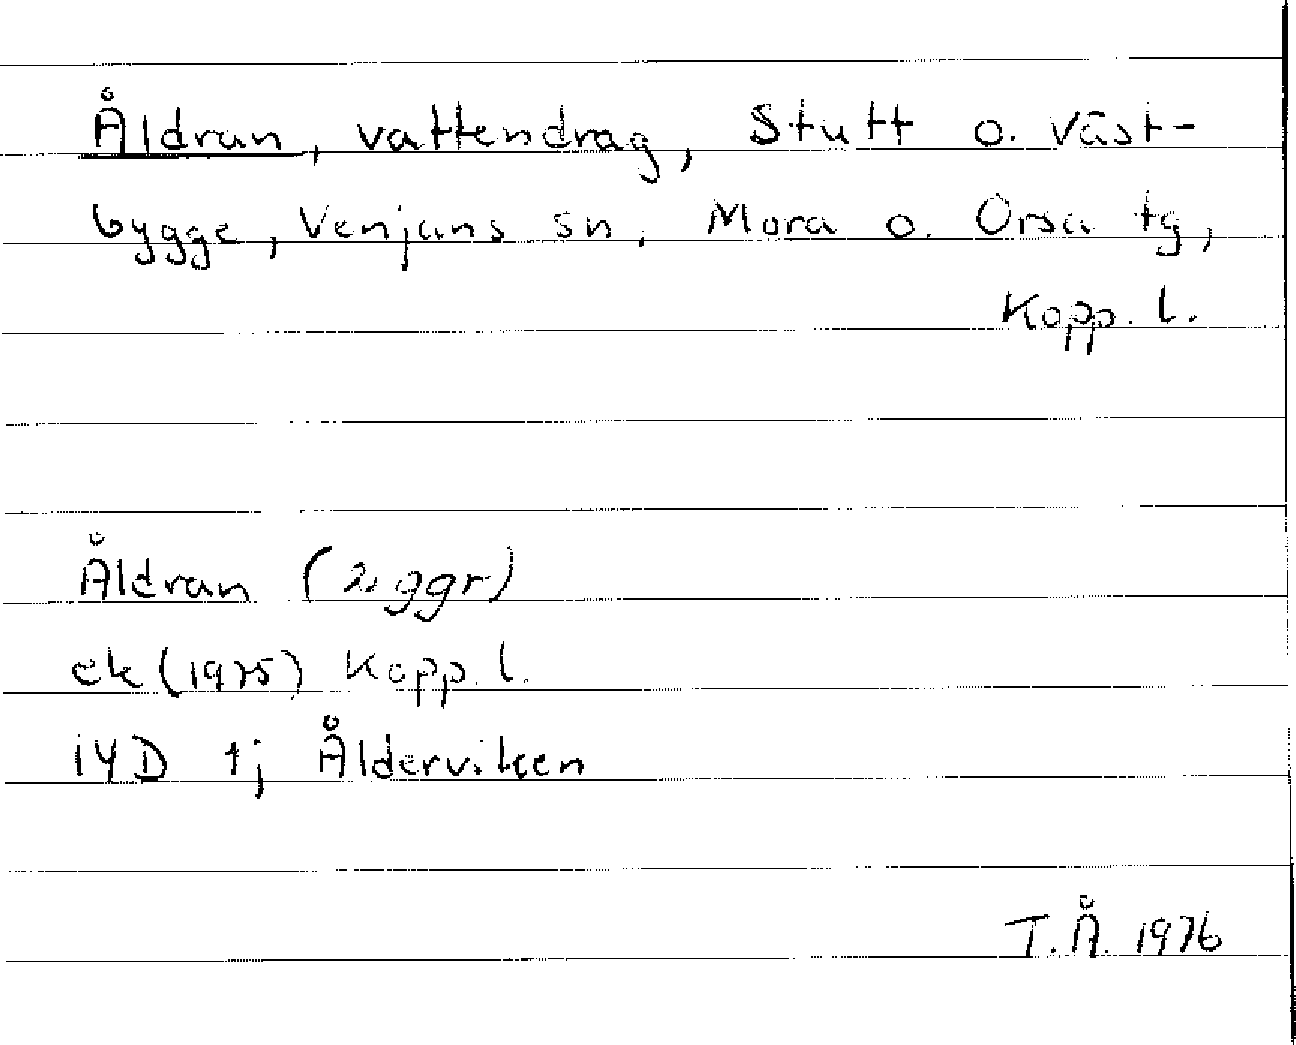 Åldran, vattendrag, Stutt o. Väst-
bygge, Venjans sn, Mora o. Orsa tg,
Kopp. l.
Åldran (2 ggr)
ek (1975) Kopp. l.
14D 1jÅlderviken
T.Å. 1976